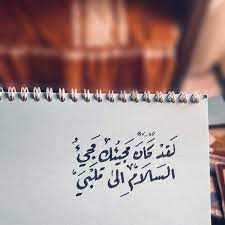 لَقَدْ كَانَ مَجيئُكَ مَجئُ
السَلامُ اِلىٰ قَلبَيِ